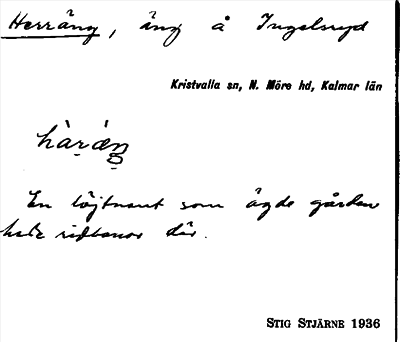 Herräng, äng å Ingelsryd
Kristvalla sn, N. Möre hd, Kalmar län
hà̀ṛáeŋ
En löjtnant som ägde gården
hade ridbanor där.
STIG STJÄRNE 1936